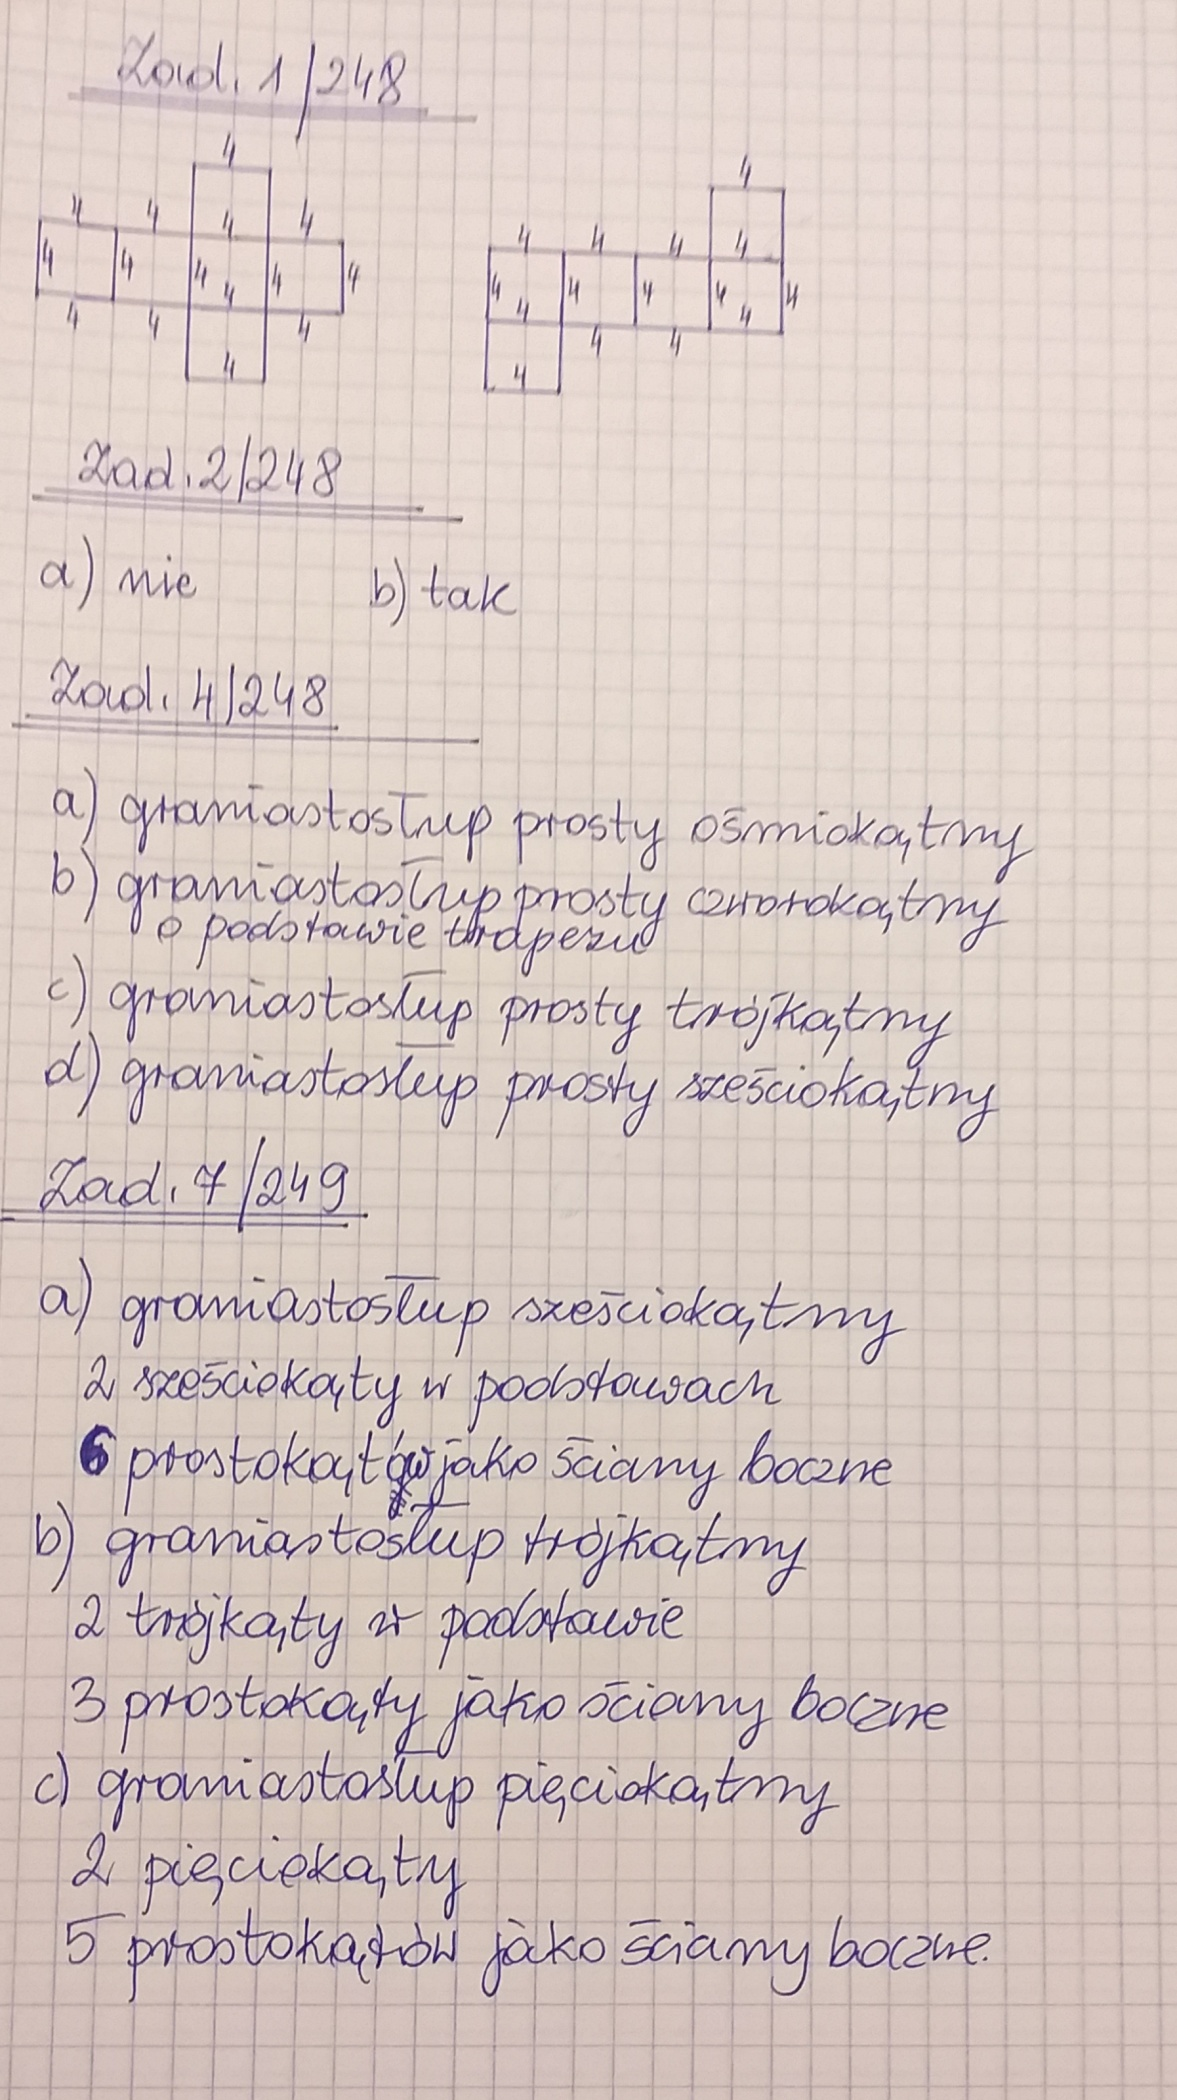 Zad. 1/248
4 4
4 4 4 4 4 4
4 4 4 4 4 4 4
4 4 4 4 4 4 4 4
4 4 4 4 4
4 4
Zad. 2/248
a) nie b) tak
Zad. 4/248
a) graniastosłup prosty ośmiokątny
b) graniastosłup prosty czworokątny
o podstawie trapezu
c) graniastosłup prosty trójkątny
d) graniastosłup prosty sześciokątny
Zad. 7/249
a) graniastosłup sześciokątny
2 sześciokąty w podstawach
6 prostokątów jako ściany boczne
b) graniastosłup trójkątny
2 trójkąty w podstawie
3 prostokąty jako ściany boczne
c) graniastosłup pięciokątny
2 pięciokąty
5 prostokątów jako ściany boczne.